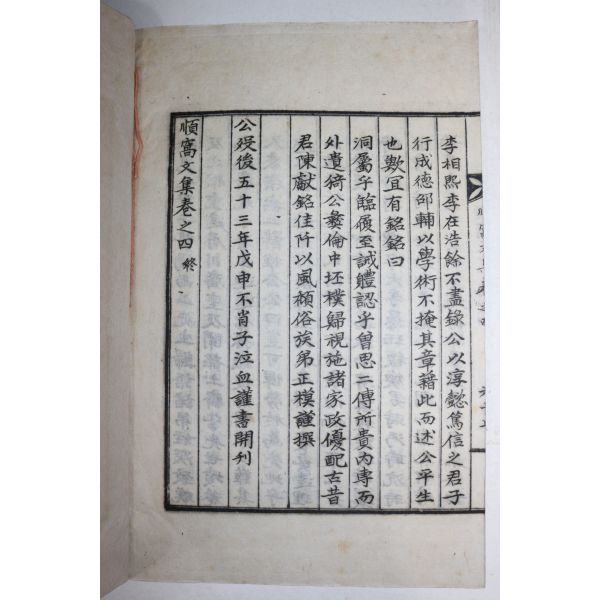 李相熙李在浩餘不盡錄公以淳懿篤信之君子
行成德卲輔以學術不掩其章藉此而述公平生
也歟宜有銘銘曰
洞屬乎臨履至誠體認乎曾思二傳所貴內專而
外遺猗公彜倫中坯樸歸視施諸家政優配古昔
君陳獻銘佳阡以風頹俗族弟正模謹撰
公歿後五十三年戊申不肖子泣血謹書開刊
順窩文集卷之四 終
順窩文集 卷之四